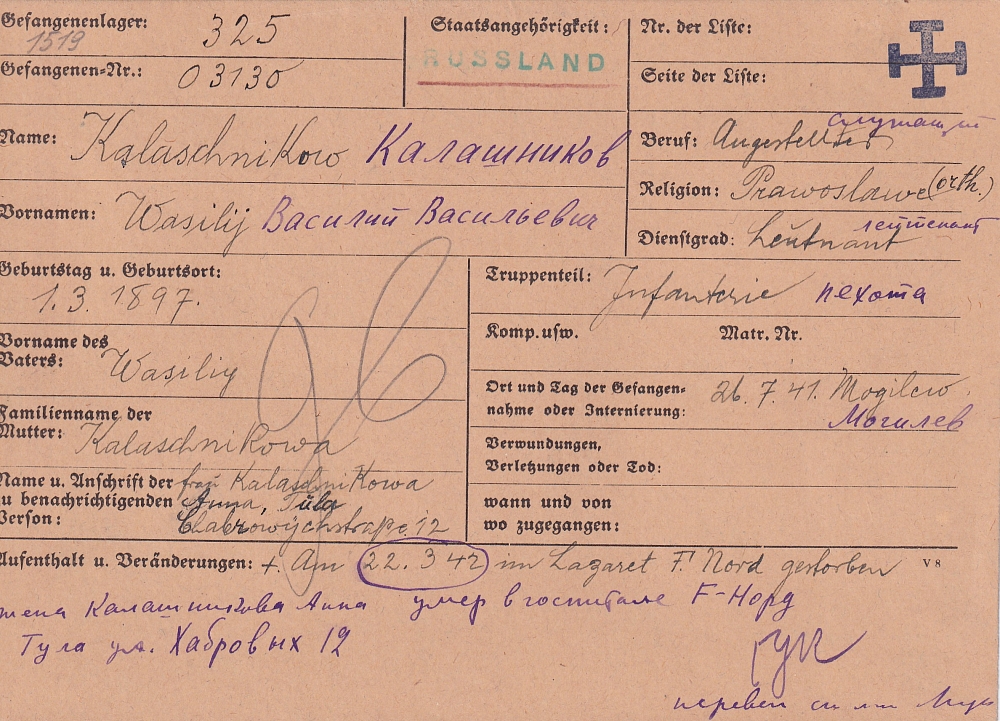 Gefangenenlager: 325
1519
Staatsangehörigkeit:
RUSSLAND
Nr. der Liste:
Gefangenen-Nr.: 03130
Seite der Liste:
Name: Kalaschnikow Калашников
Beruf: Angestellter служащий
Religion: Prawoslawe (orth.)
Vornamen: Wasilij Василий Васильевич
Dienstgrad: Leutnant лейтенант
Geburtstag u. Geburtsort:
1.3.1897.
Truppenteil: Infanterie пехота
Komp. usw. Matr. Nr.
Vorname des
Vaters: Wasiliy
Ort und Tag der Gefangen-
nahme oder Internierung: 26.7.41. Mogilew.
Могилев
Familienname der
Mutter: Kalaschnikowa
Verwundungen,
Verletzungen oder Tod:
Name u. Anschrift der frau Kalaschnikowa
zu benachrichtigenden Anna, Tula
Person: Chabrowychstraße 12
wann und von
wo zugegangen:
Aufenthalt u. Veränderungen: + Am 22.3 42 im Lazaret F. Nord gestorben V 8
жена Калашникова Анна умер в госпитале F-Норд
Тула ул. Хабровых 12
перевел